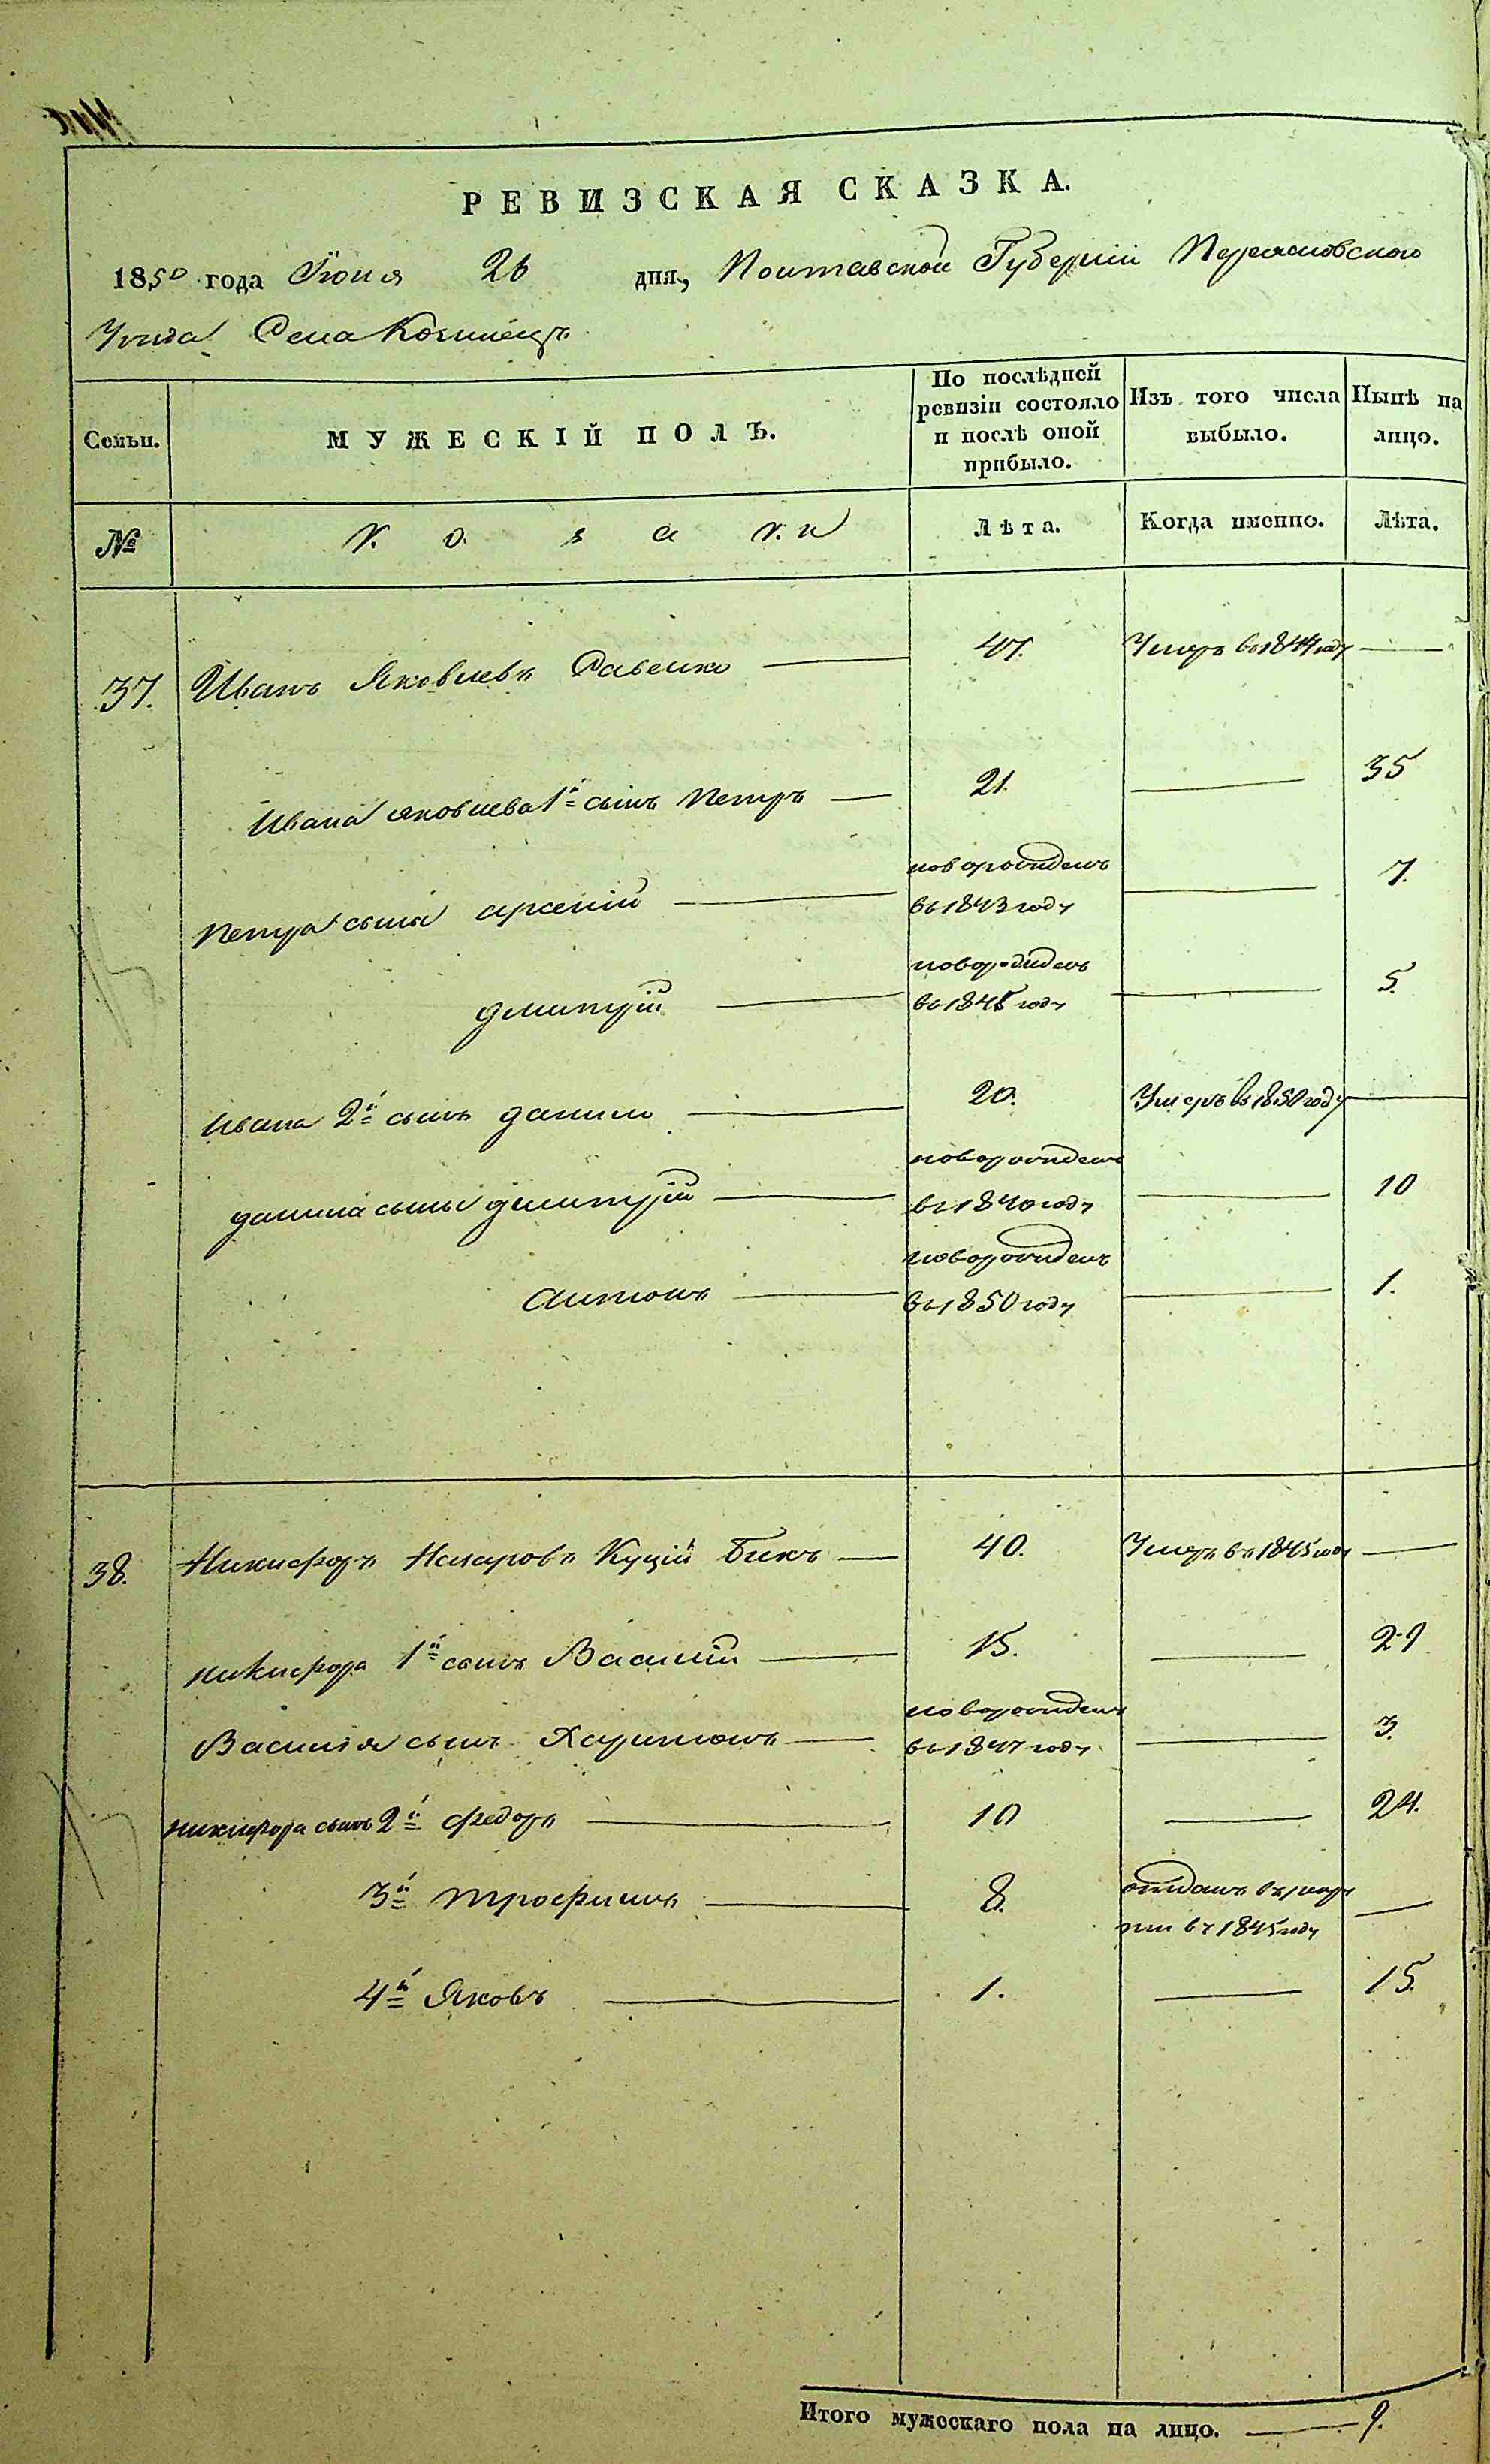 РЕВИЗСКАЯ СКАЗКА.
1850 года Іюня 26 дня, Полтавской Губерніи Переяславского
Уезда Села Козинецъ
Семьи.
МУЖЕСКІЙ ПОЛЪ.
По послѣдней ревизіи состояло и послѣ оной прибыло.
Изъ того числа выбыло.
Нынѣ на лицо.
№
козаки
Лѣта.
Когда именно.
Лѣта.
37. Иванъ Яковлевъ Савенко 47. Умеръ въ 1844 году
Ивана Яковлева 1й сынъ Петръ 21. 35
Петра сыны Арсеній новорожденъ въ 1843 году 7.
Дмитрій новорожденъ въ 1845 году 5.
Ивана 2й сынъ Данило 20. Умеръ въ 1850 году
Данила сыны Дмитрій новорожденъ въ 1840 году 10
Антонъ новорожденъ въ 1850 году 1.
38. Никифоръ Назаровъ Куцій Бикъ 40. Умеръ въ 1845 году
Никифора 1й сынъ Василій 15. 29
Василія сынъ Харитонъ новорожденъ въ 1847 году 3.
Никифора сынъ 2й Федоръ 10 24.
3й Трофимъ 8. отданъ въ рекруты въ 1845 году
4й Яковъ 1. 15.
Итого мужескаго пола на лицо. 9.